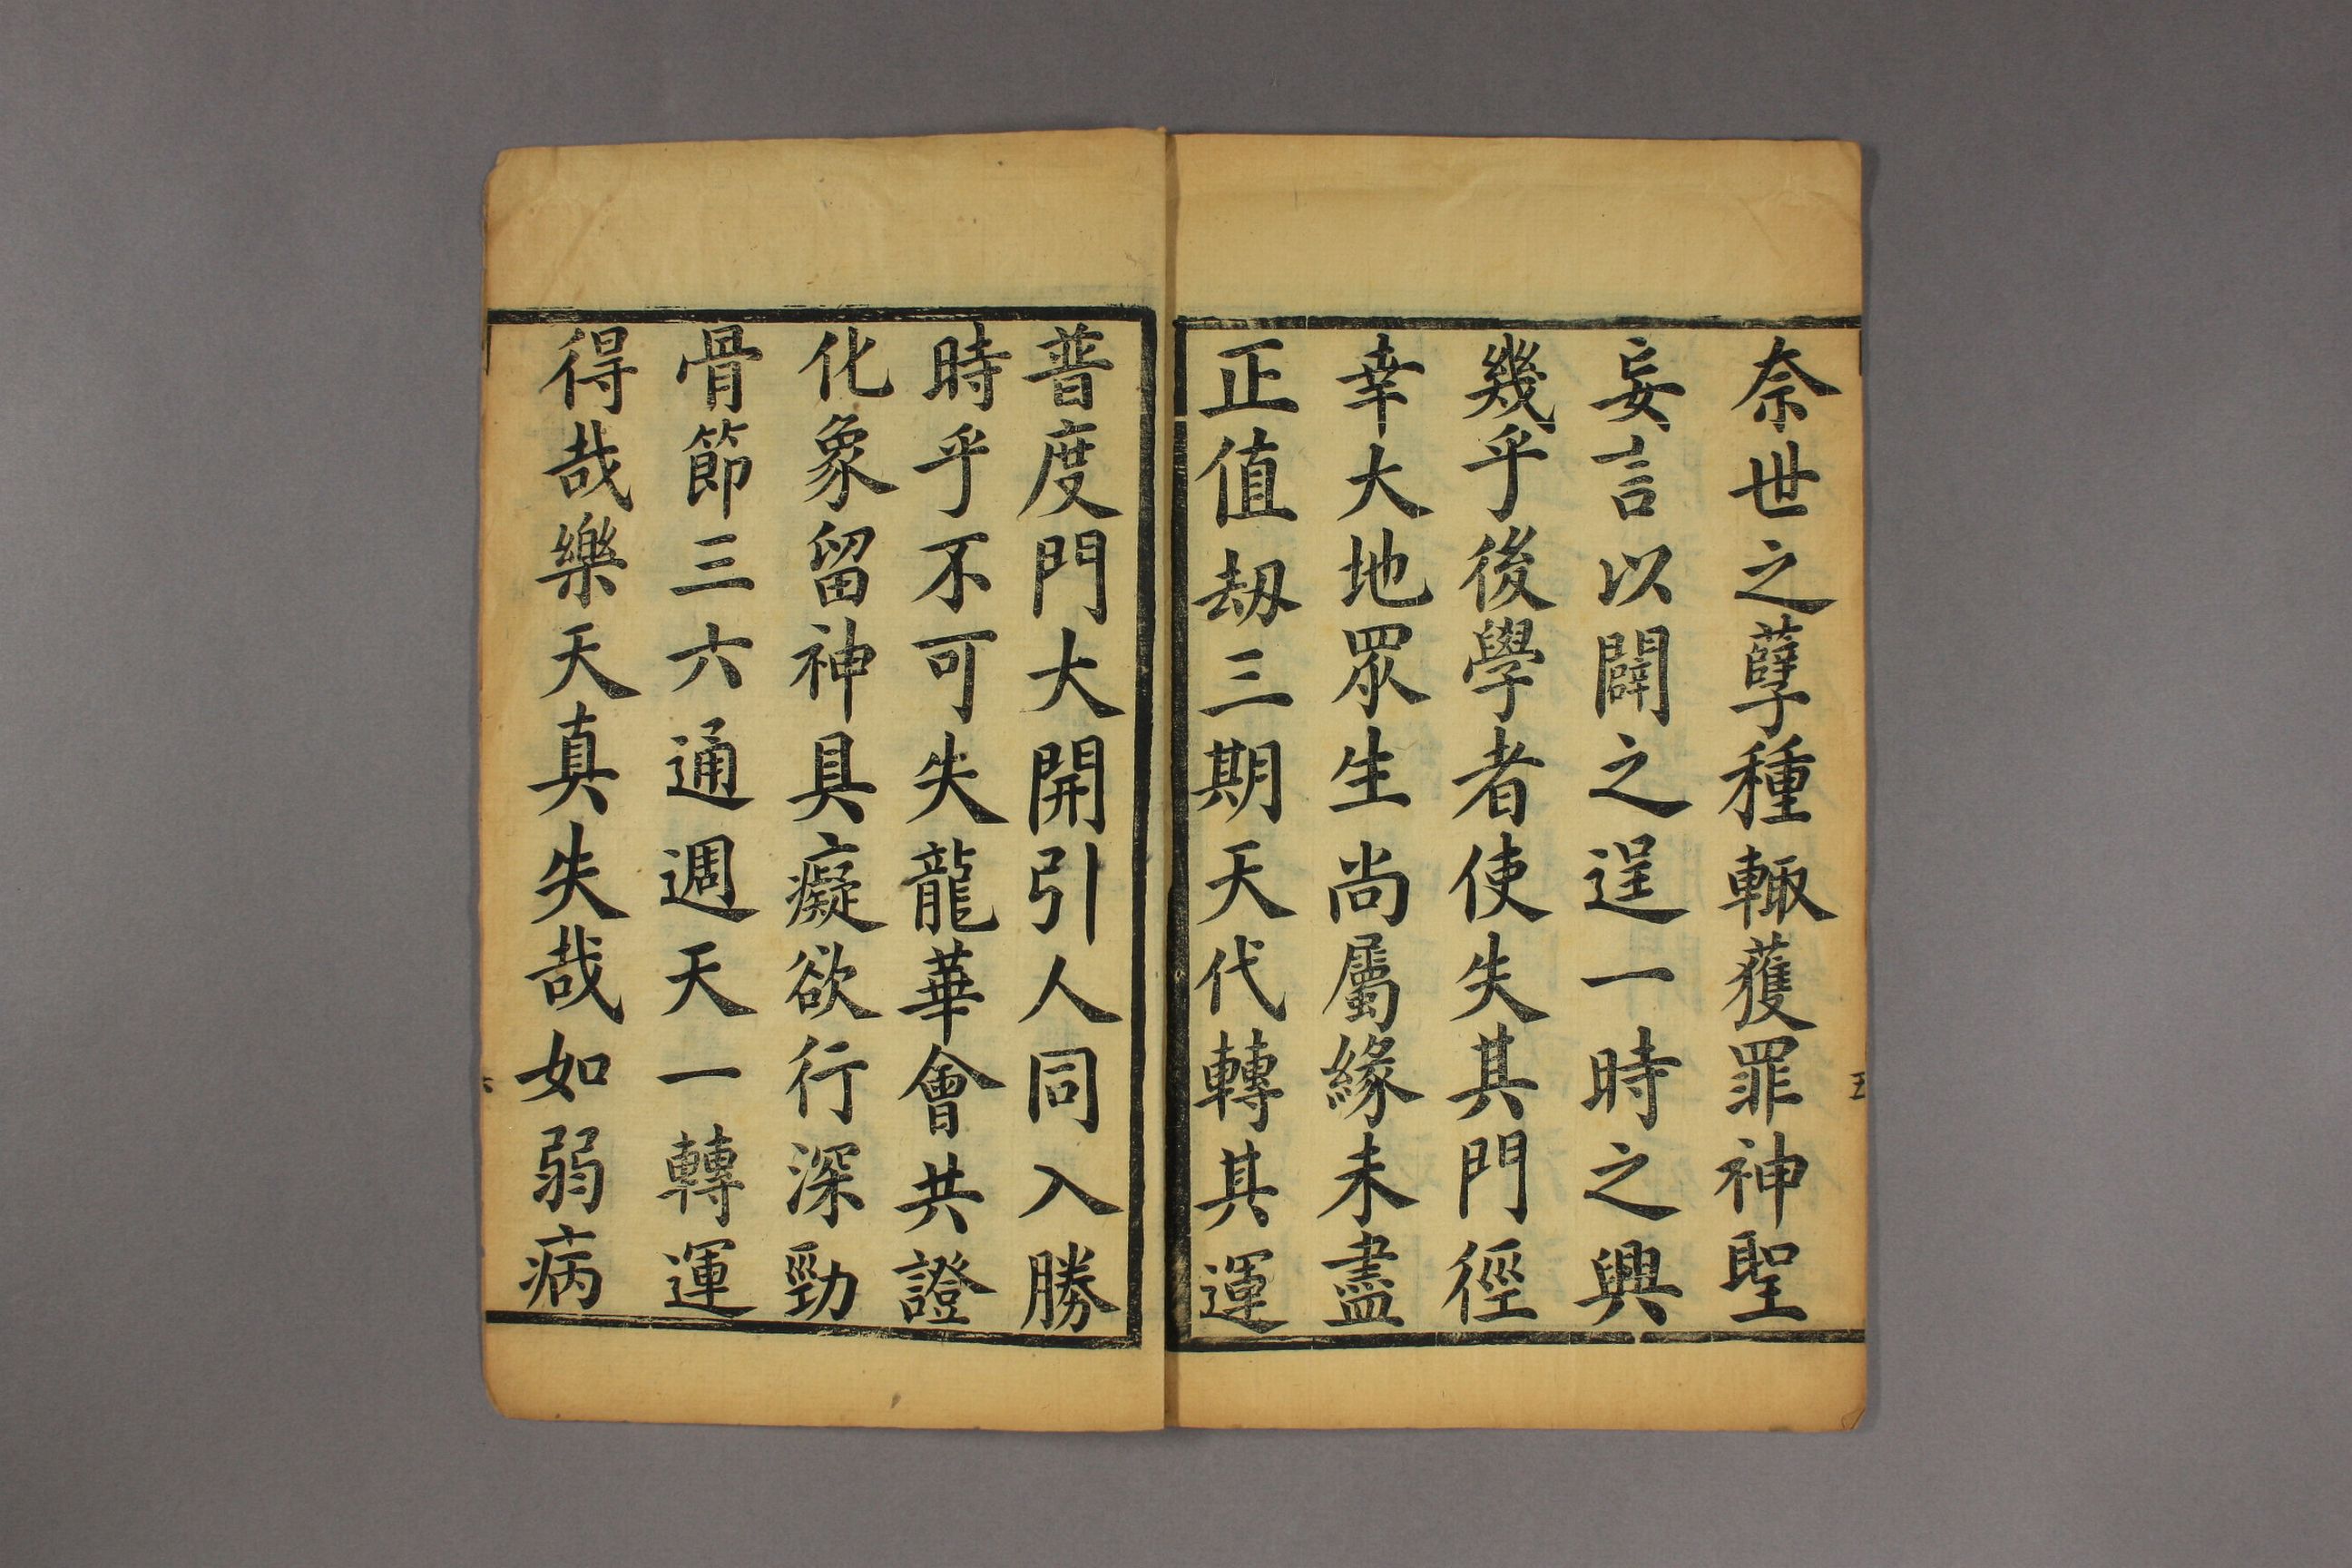 奈世之孽種輙獲罪神聖
妄言以闢之逞一時之興
幾乎後學者使失其門徑
幸大地眾生尚屬緣未盡
正值刼三期天代轉其運
普度門大開引人同入勝
時乎不可失龍華會共證
化象留神具癡欲行深勁
骨節三六通週天一轉運
得哉樂天真失哉如弱病
五